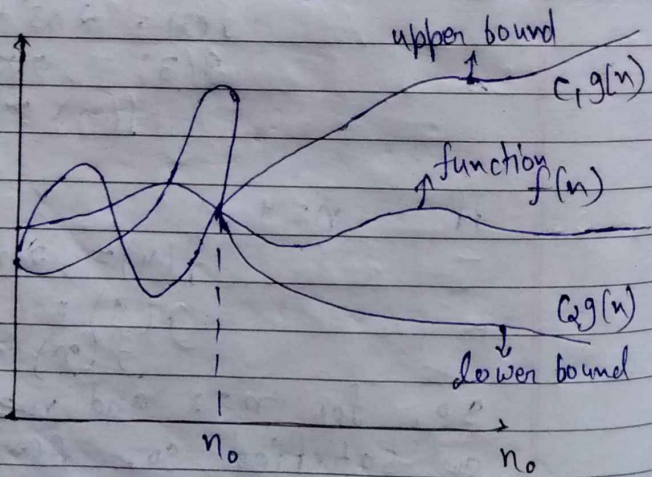 upper bound
C₁g(n)
function
f(n)
C₂g(n)
lower bound
n₀
n₀